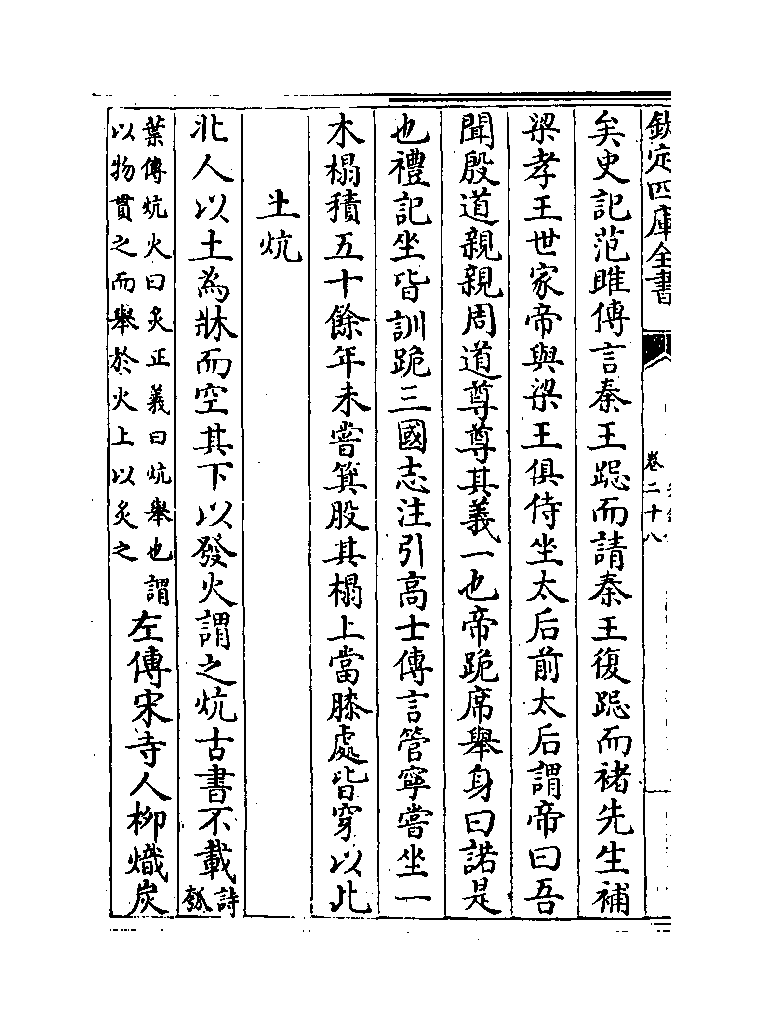 欽定四庫全書
卷二十八
矣史記范雎傳言秦王跽而請秦王復跽而褚先生補
梁孝王世家帝與梁王俱侍坐太后前太后謂帝曰吾
聞殷道親親周道尊尊其義一也帝跪席舉身曰諾是
也禮記坐皆訓跪三國志注引高士傳言管寧嘗坐一
木榻積五十餘年未嘗箕股其榻上當膝處皆穿以此
土炕
北人以土為牀而空其下以發火謂之炕古書不載詩瓠
葉傳炕火曰炙正義曰炕舉也謂以物貫之而舉於火上以炙之左傳宋寺人柳熾炭